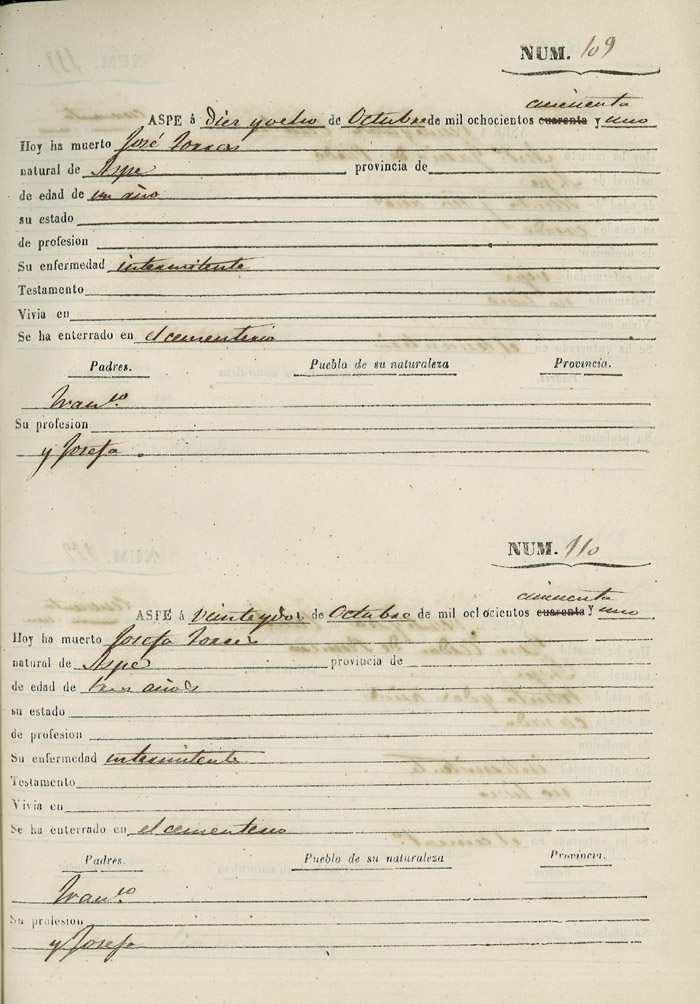 NUM. 109
cincuenta
ASPE á Diez y ocho de Octubre de mil ochocientos cuarenta y uno
Hoy ha muerto José Torres
natural de Aspe provincia de
de edad de un año
su estado
de profesion
Su enfermedad intermitente
Testamento
Vivia en
Se ha enterrado en el cementerio
Padres. Pueblo de su naturaleza Provincia.
Franco
Su profesion
y Josefa
NUM. 110
cincuenta
ASPE á Veinte y dos de Octubre de mil ochocientos cuarenta y uno
Hoy ha muerto Josefa Torres
natural de Aspe provincia de
de edad de tres años
su estado
de profesion
Su enfermedad intermitente
Testamento
Vivia en
Se ha enterrado en el cementerio
Padres. Pueblo de su naturaleza Provincia.
Franco
Su profesion
y Josefa